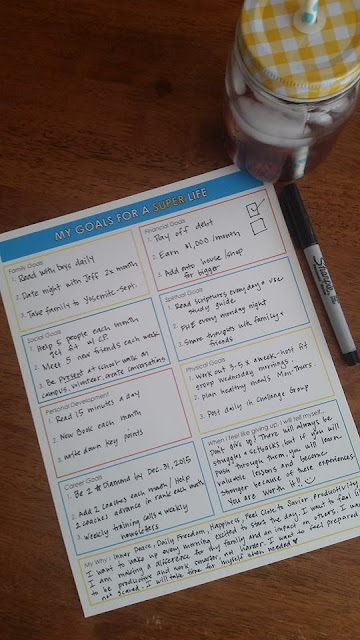 MY GOALS FOR A SUPER LIFE
Family Goals
1. Read with boys daily
2. Date night with Jeff 2x month
3. Take family to Yosemite-Sept.
Financial Goals
1. Pay off debt
2. Earn $1,000/month
3. Add onto house/shop
for bigger
Social Goals
1. Help 5 people each month
get fit w/ CP.
2. Meet 5 new friends each week
3. Be Present at school-walk on
campus, volunteer, create conversations
Spiritual Goals
1. Read Scriptures everyday & use
study guide
2. every monday night
3. Share thoughts with family &
friends
Personal Development
1. Read 15 minutes a day
2. New Book each month
3. Write down key points
Physical Goals
1. Work out 3-5 x a week-host fit
group Wednesday mornings
2. plan healthy meals Mon-Thurs.
3. Post daily in Challenge Group
Career Goals
1. Be 2 * Diamond by Dec. 31, 2015
2. Add 2 Coaches each month/Help
2 coaches advance in rank each month
3. Weekly training calls & weekly
newsletters
When I feel like giving up, I will tell myself...
Don't give up! There will always be
struggles & setbacks, but if you will
push through them, you will learn
valuable lessons and become
stronger because of those experiences.
You are worth it!!
My Why: Inner Peace, Daily Freedom, Happiness, Feel Close to Savior, productivity
I want to wake up every morning excited to start the day. I want to feel like
I am making a difference for my family and an impact on others. I want
to be productive and work smarter, not harder. I want to feel prepared
not scared. I will take time for myself when needed
Sharpie